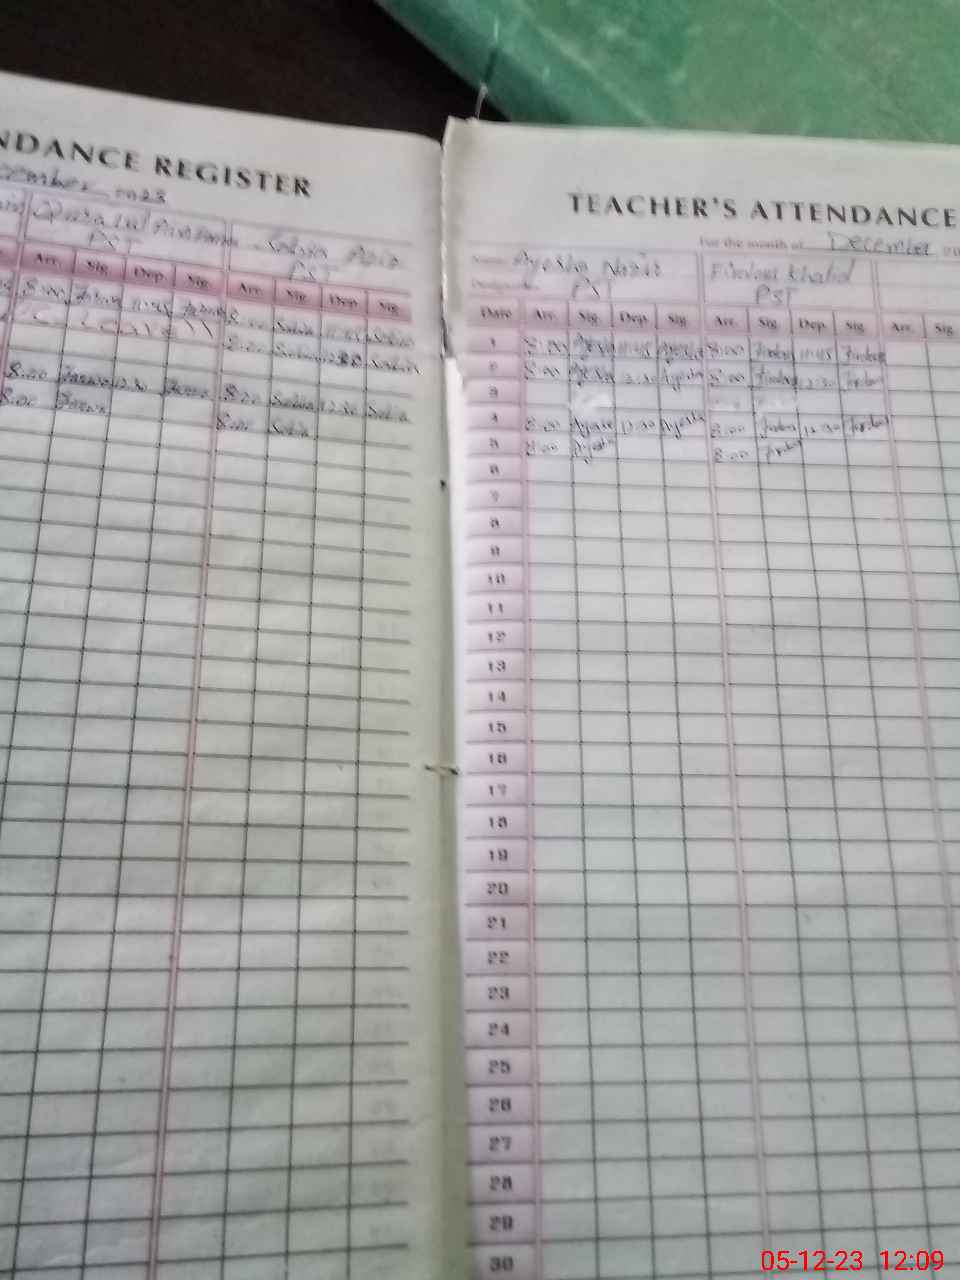 NDANCE REGISTER
cember 2023
PST
PST
Arr. Sig. Dep. Sig. Arr. Sig. Dep. Sig.
8:00 11:45 8:00 Sobia 11:45 Sobia
8:00 Sobia 12:30 Sobia
8:00 12:30 8:00 Sobia 12:30 Sobia
8:00 8:00 Sobia
TEACHER'S ATTENDANCE
For the month of December
Name Ayesha Nazir Firdous Khalid
Designation PST PST
Date Arr. Sig. Dep. Sig. Arr. Sig. Dep. Sig. Arr. Sig.
1 8:00 Ayesha 11:45 Ayesha 8:00 Firdous 11:45 Firdous
2 8:00 Ayesha 12:30 Ayesha 8:00 Firdous 12:30 Firdous
3
4 8:00 Ayesha 12:30 Ayesha 8:00 Firdous 12:30 Firdous
5 8:00 Ayesha 8:00 Firdous
6
7
8
9
10
11
12
13
14
15
16
17
18
19
20
21
22
23
24
25
26
27
28
29
30
05-12-23 12:09